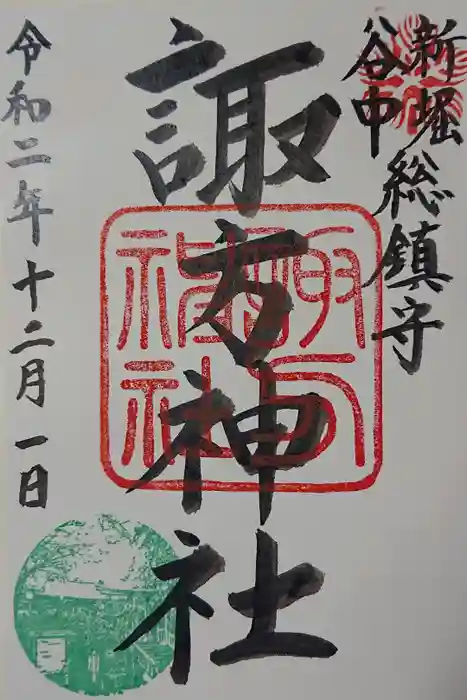 新堀
谷中
総鎮守
諏方神社
令和二年十二月一日